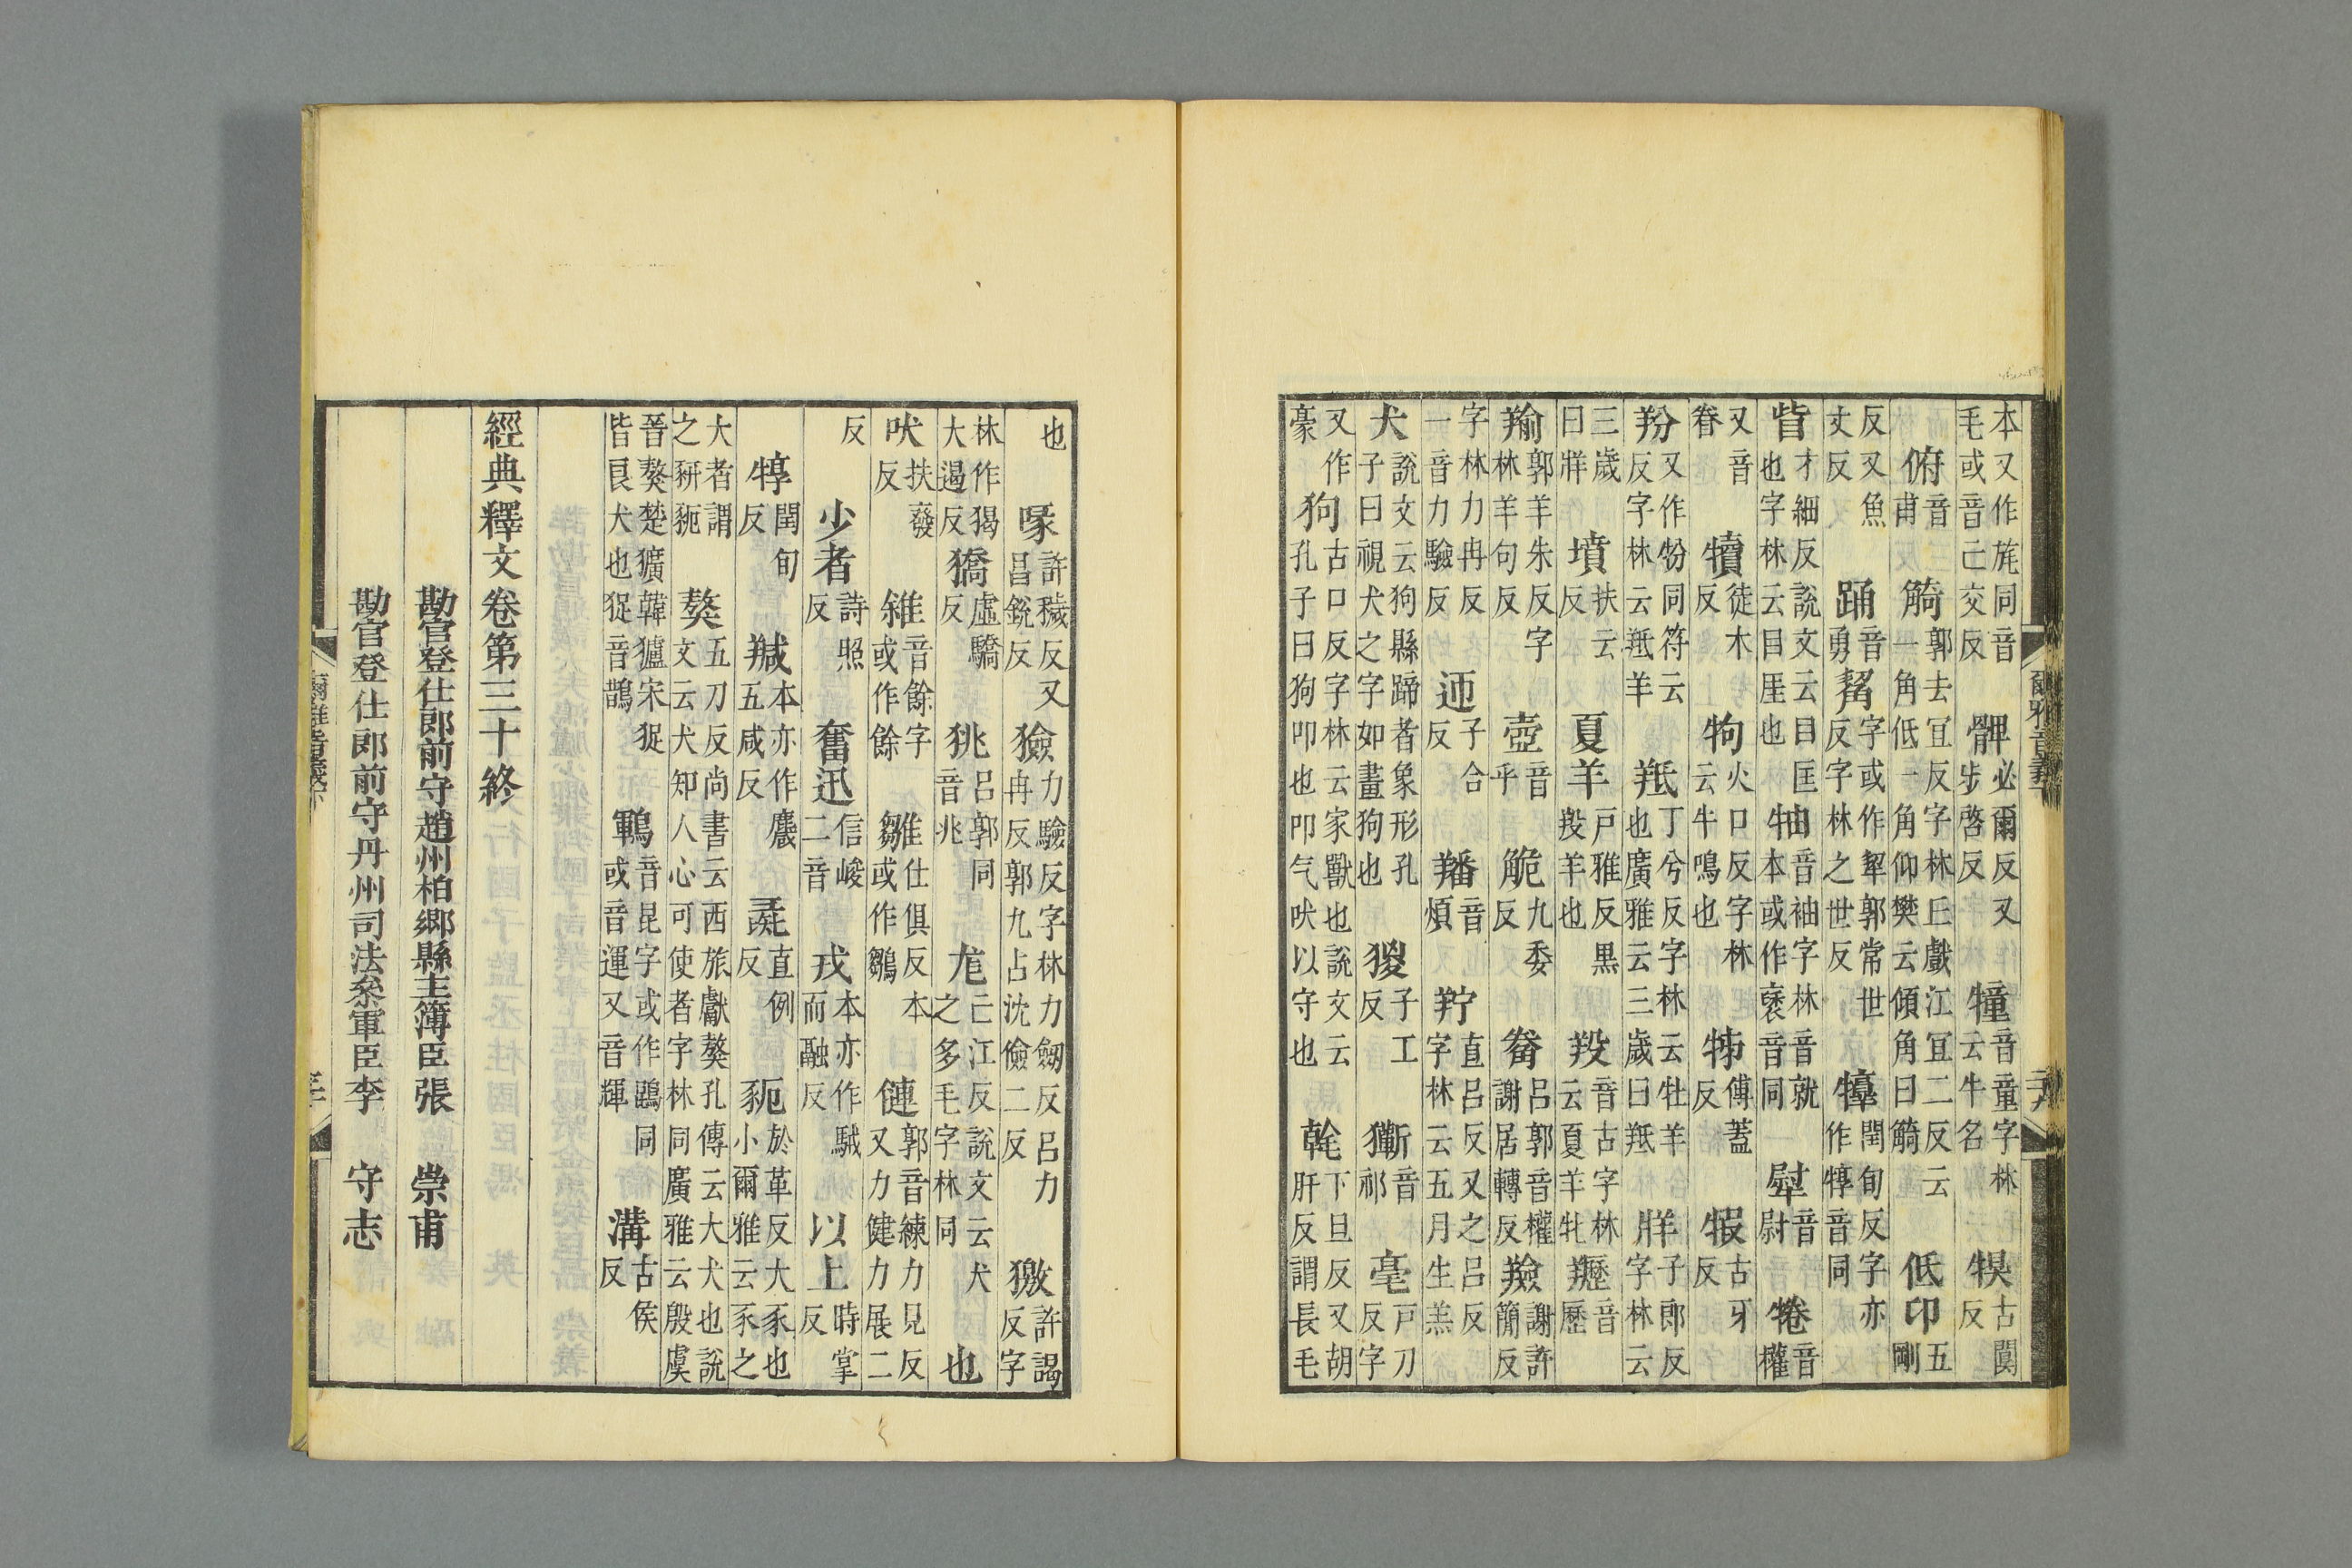 本又作旄同音毛或音己交反 髀必爾反又步啓反 犝音童字林云牛名 犑古闃反
俯音甫 觭郭去宜反字林丘戲江宜二反云一角低一角仰樊云傾角曰觭 低卬五剛
反又魚丈反 踊音勇 觢字或作犎郭常世反字林之世反 閏旬反字亦作犉音同
眥才細反說文云目匡也字林云目厓也 牰音袖字林音就本或作褎音同 犚音尉 犈音權
又音眷 犢徒木反 㸸火口反字林云牛鳴也 㸬傅蓋反 犌古牙反
羒又作牥同符云反字林云羝羊 羝丁兮反字林云牡羊也廣雅云三歲曰羝 牂子郎反字林云
三歲曰牂 墳扶云反 夏羊戶雅反黑羖羊也 羖音古字林云夏羊牝 䍽音歷
羭郭羊朱反字林羊句反 壺音乎 觤九委反 觠呂郭音權謝居轉反 羷謝許簡反
字林力冉反一音力驗反 迊子合反 羳音煩 羜直呂反又之呂反字林云五月生羔
犬說文云狗縣蹄者象形孔子曰視犬之字如畫狗也 猣子工反 音祁 毫戸刀反字
又作豪 狗古口反字林云家獸也說文云孔子曰狗叩也叩气吠以守也 下旦反又胡旰反謂長毛
爾雅音義下
也 喙許穢反又昌銳反 獫力驗反字林力劒反呂力冉反郭九占沈儉二反 許謁反字
林作猲大遏反 獢虛驕反 狣呂郭同音兆 尨亡江反說文云犬之多毛字林同 也
吠扶發反 雓音餘字或作餘 雛仕俱反本或作鶵 僆郭音練力見反又力健力展二
反 少者詩照反 奮迅信峻二音 戎本亦作駥而融反 以上時掌反
犉閏旬反 羬本亦作麙五咸反 彘直例反 豟於革反大豕也小爾雅云豕之
大者謂之豣豟 獒五刀反尚書云西旅獻獒孔傳云大犬也說文云犬知人心可使者字林同廣雅云殷虞
晉獒楚獷韓獹宋捉皆良犬也捉音鵲 鶤音昆字或作鵾同或音運又音輝 溝古侯反
經典釋文卷第三十終
勘官登仕郎前守趙州柏鄉縣主簿臣張 崇甫
勘官登仕郎前守丹州司法叅軍臣李 守志